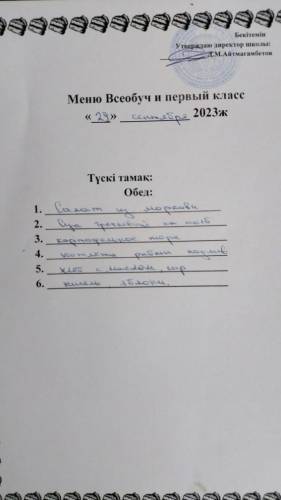 Бекітемін
Утверждаю директор школы:
Д.М.Айтмагамбетов
Меню Всеобуч и первый класс
«29» сентября 2023ж
Түскі тамақ:
Обед:
1. Салат из моркови
2. Суп гречневый на
3. картофельное пюре
4. котлета рыбная подлив
5. хлеб с маслом, сыр
6. кисель яблочн.